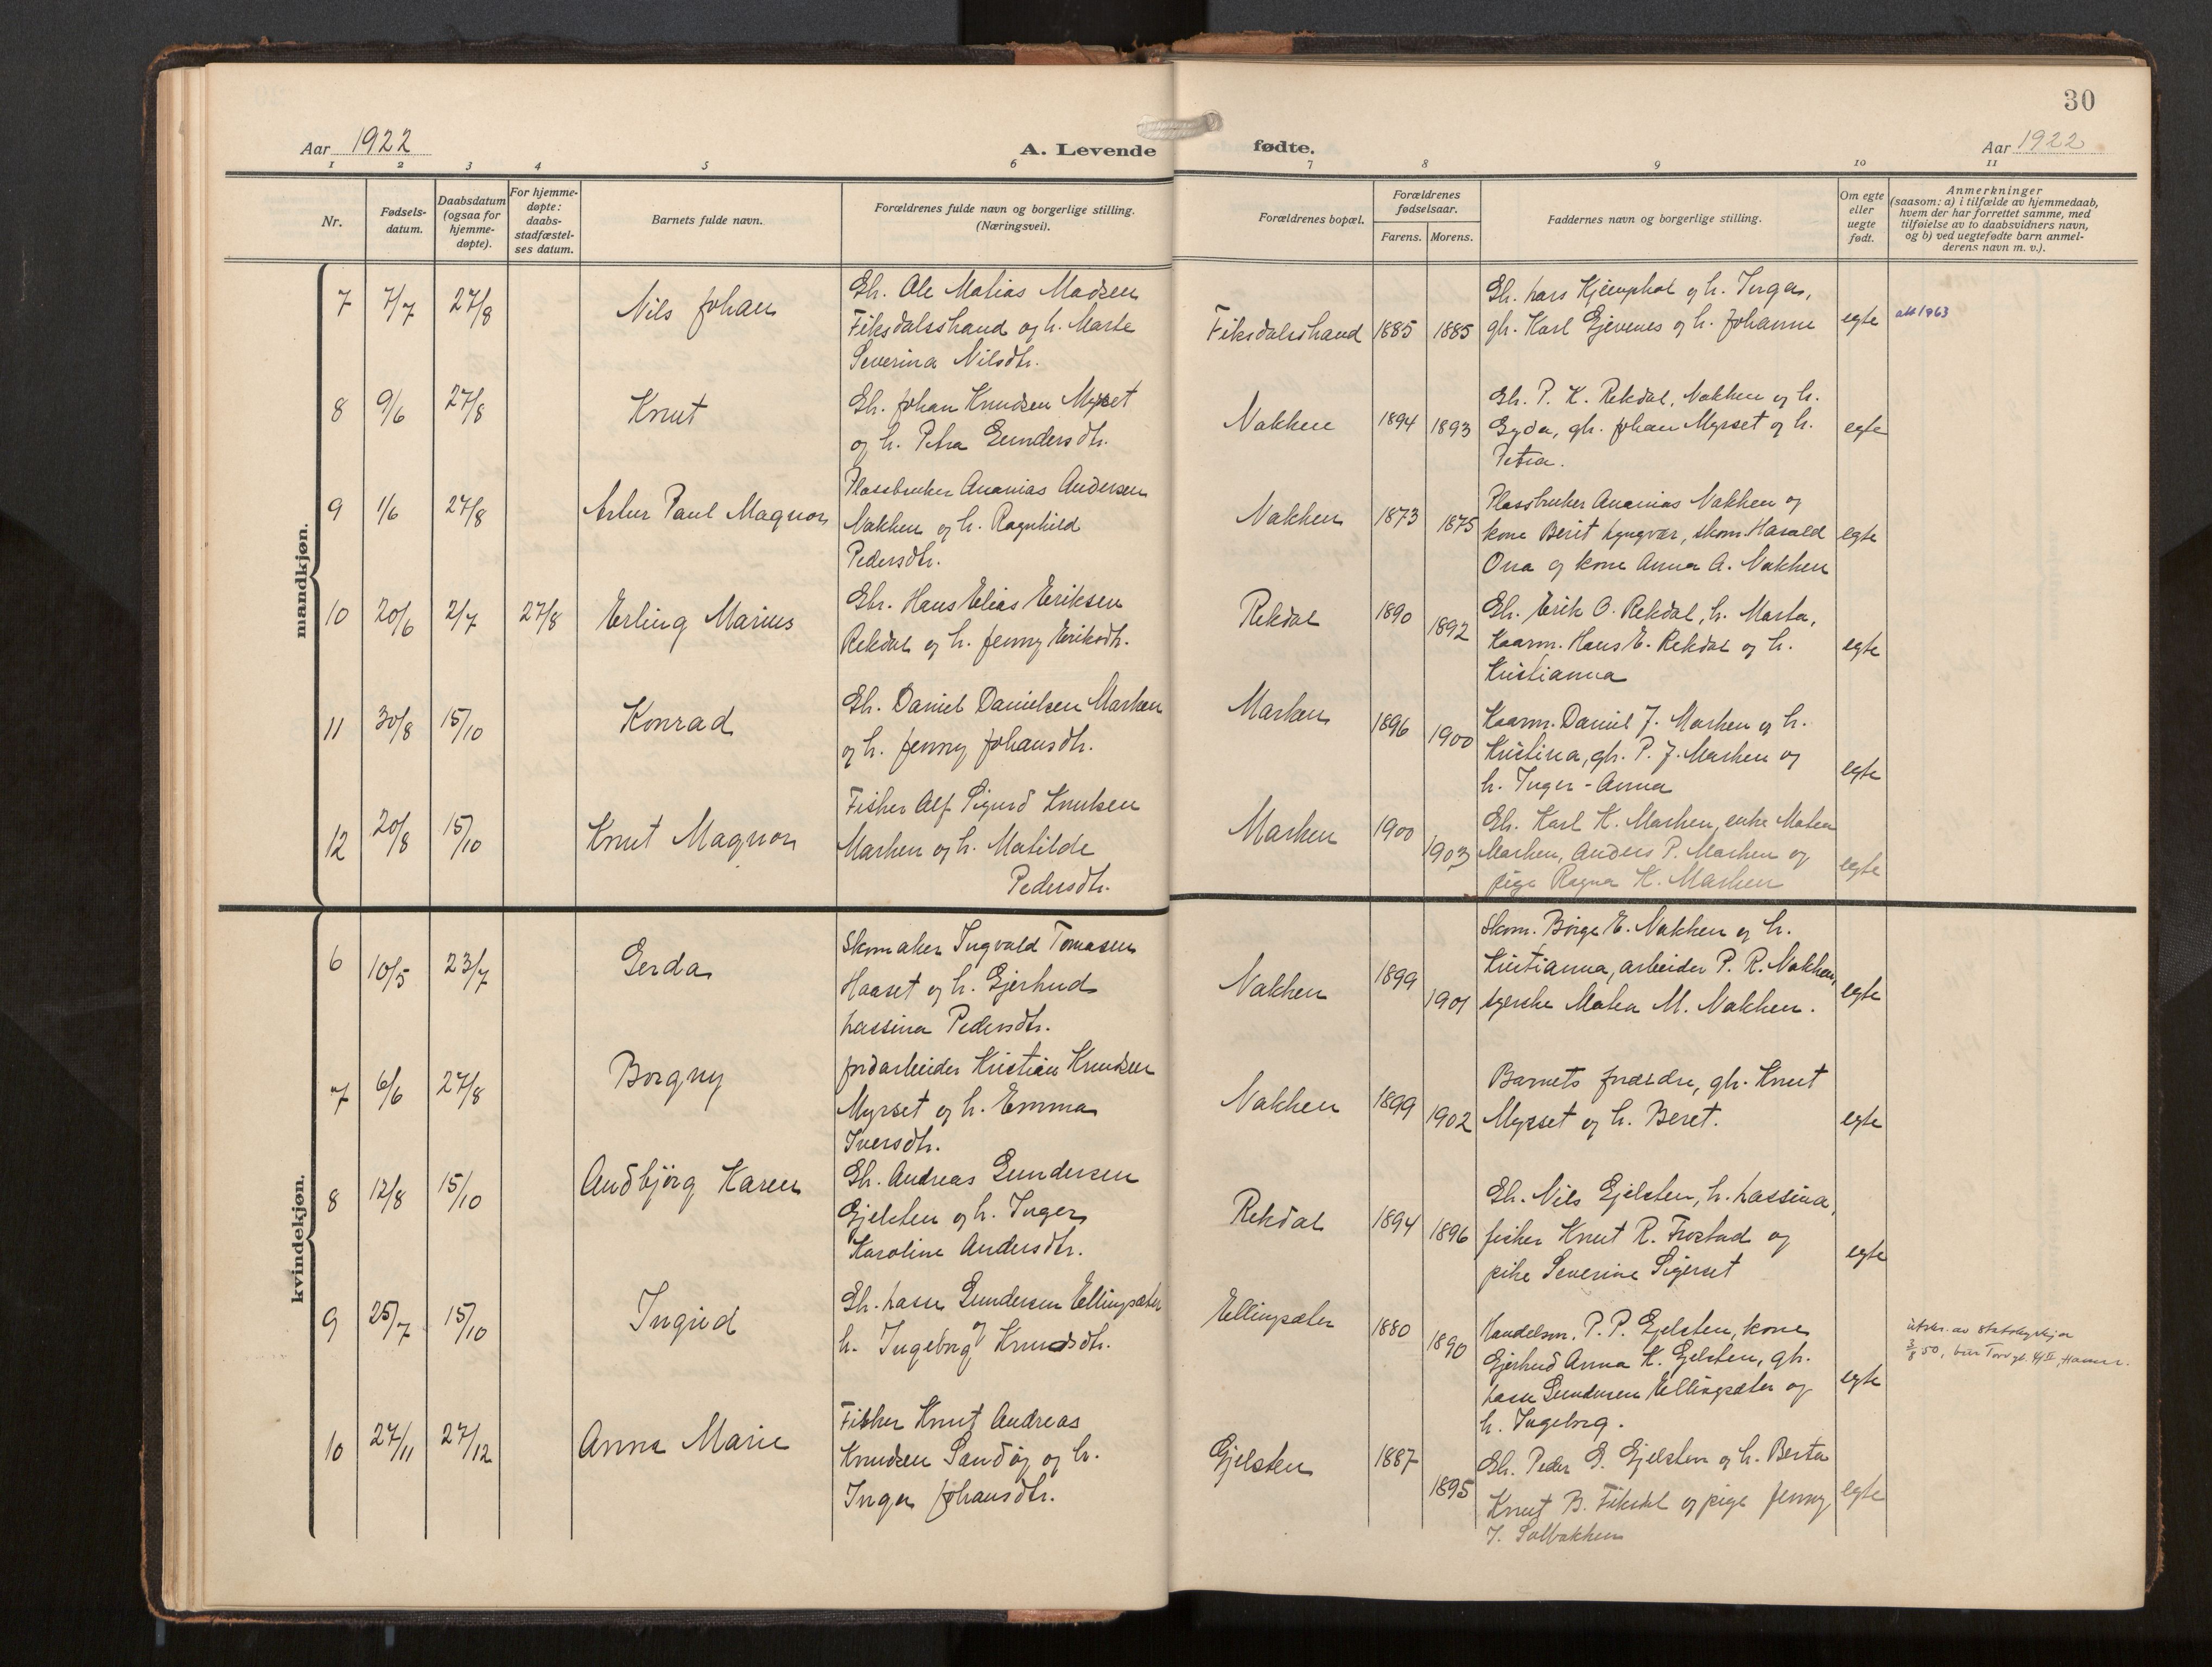 30
Aar 1922
A. Levende
fødte.
Aar 1922
1 2 3 4 5 6 7 8 9 10 11
Nr.
Fødsels-
datum.
Daabsdatum
(ogsaa for
hjemme-
døpte).
For hjemme-
døpte:
daabs-
stadfæstel-
ses datum.
Barnets fulde navn.
Forældrenes fulde navn og borgerlige stilling.
(Næringsvei).
Forældrenes bopæl.
Forældrenes
fødselsaar.
Farens. Morens.
Faddernes navn og borgerlige stilling.
Om egte
eller
uegte
født.
Anmerkninger
(saasom: a) i tilfælde av hjemmedaab,
hvem der har forrettet samme, med
tilføielse av to daabsvidners navn,
og b) ved uegtefødte barn anmel-
derens navn m. v.).
mandkjøn.
7 7/7 27/8 Nils Johan
Gh. Ole Matias Madsen
Fiksdalsstrand og h. Marte
Severina Nilsdtr.
Fiksdalsstrand 1885 1885
Gh. Lars og h. Inga,
gh. Karl Gjevenes og h. Johanne
egte
att 1963
8 9/6 27/8 Knut
Gh. Johan Knudsen Myrset
og h. Petra Gundersdtr.
Nakken 1894 1893
Gh. P. K. Rekdal, Nakken og h.
Gyda, gh. Johan Myrset og h.
Petra.
egte
9 1/6 27/8 Artur Paul Magnor
Plassbruker Ananias Andersen
Nakken og h. Ragnhild
Pedersdtr.
Nakken 1873 1875
Plassbruker Ananias Nakken og
kone Berit Lyngvær, skom. Harald
Ona og kone Anna A. Nakken
egte
10 20/6 2/7 27/8 Erling Marius
Gbr. Hans Elias Eriksen
Rekdal og h. Jenny Eriksdtr.
Rekdal 1890 1892
Gh. Erik O. Rekdal, h. Marta,
Kaarm. Hans E. Rekdal og h.
Kristianna
egte
11 30/8 15/10 Konrad
Gh. Daniel Danielsen Marken
og h. Jenny Johansdtr.
Marken 1896 1900
Kaarm. Daniel J. Marken og h.
Kristina, gh. P. J. Marken og
h. Inger-Anna
egte
12 20/8 15/10 Knut Magnor
Fisker Alf Sigurd Knutsen
Marken og h. Matilde
Pedersdtr.
Marken 1900 1903
Gh. Karl K. Marken, enke Matea
Marken, Anders P. Marken og
pige Ragna K. Marken
egte
kvindekjøn.
6 10/5 23/7 Gerda
Skomaker Ingvald Tomasen
Haaset og h. Gjertrud
Lassina Pedersdtr.
Nakken 1899 1901
Skom. Børge E. Nakken og h.
Kristianna, arbeider P. R. Nakken,
syerske Matea M. Nakken.
egte
7 6/6 27/8 Borgny
Jordarbeider Kristian Knudsen
Myrset og h. Emma
Iversdtr.
Nakken 1899 1902
Barnets forældre, gh. Knut
Myrset og h. Beret.
egte
8 12/8 15/10 Audbjörg Karen
Gh. Andreas Gundersen
Gjelsten og h. Inger
Karoline Andersdtr.
Rekdal 1894 1896
Gh. Nils Gjelsten, h. Lassina,
fisker Knut R. Frostad og
pike Severine Sigerset
egte
9 25/7 15/10 Ingrid
Gh. Lasse Gundersen Ellingsæter
og
h. Ingeborg Knudsdtr.
Ellingsæter 1880 1890
Handelsm. P. P. Gjelsten, kone
Gjertrud Anna K. Gjelsten, gh.
Lasse Gundersen Ellingsæter og
h. Ingeborg.
egte
utskr. av
3/8 50, bur Torvgt.
10 27/11 27/12 Anna Marie
Fisker Knut Andreas
Knudsen Sandøy og h.
Inga Johansdtr.
Gjelsten 1887 1895
Gh. Peder G. Gjelsten og h. Berta
Knut B. Fiksdal og pige Jenny
J. Solbakken
egte